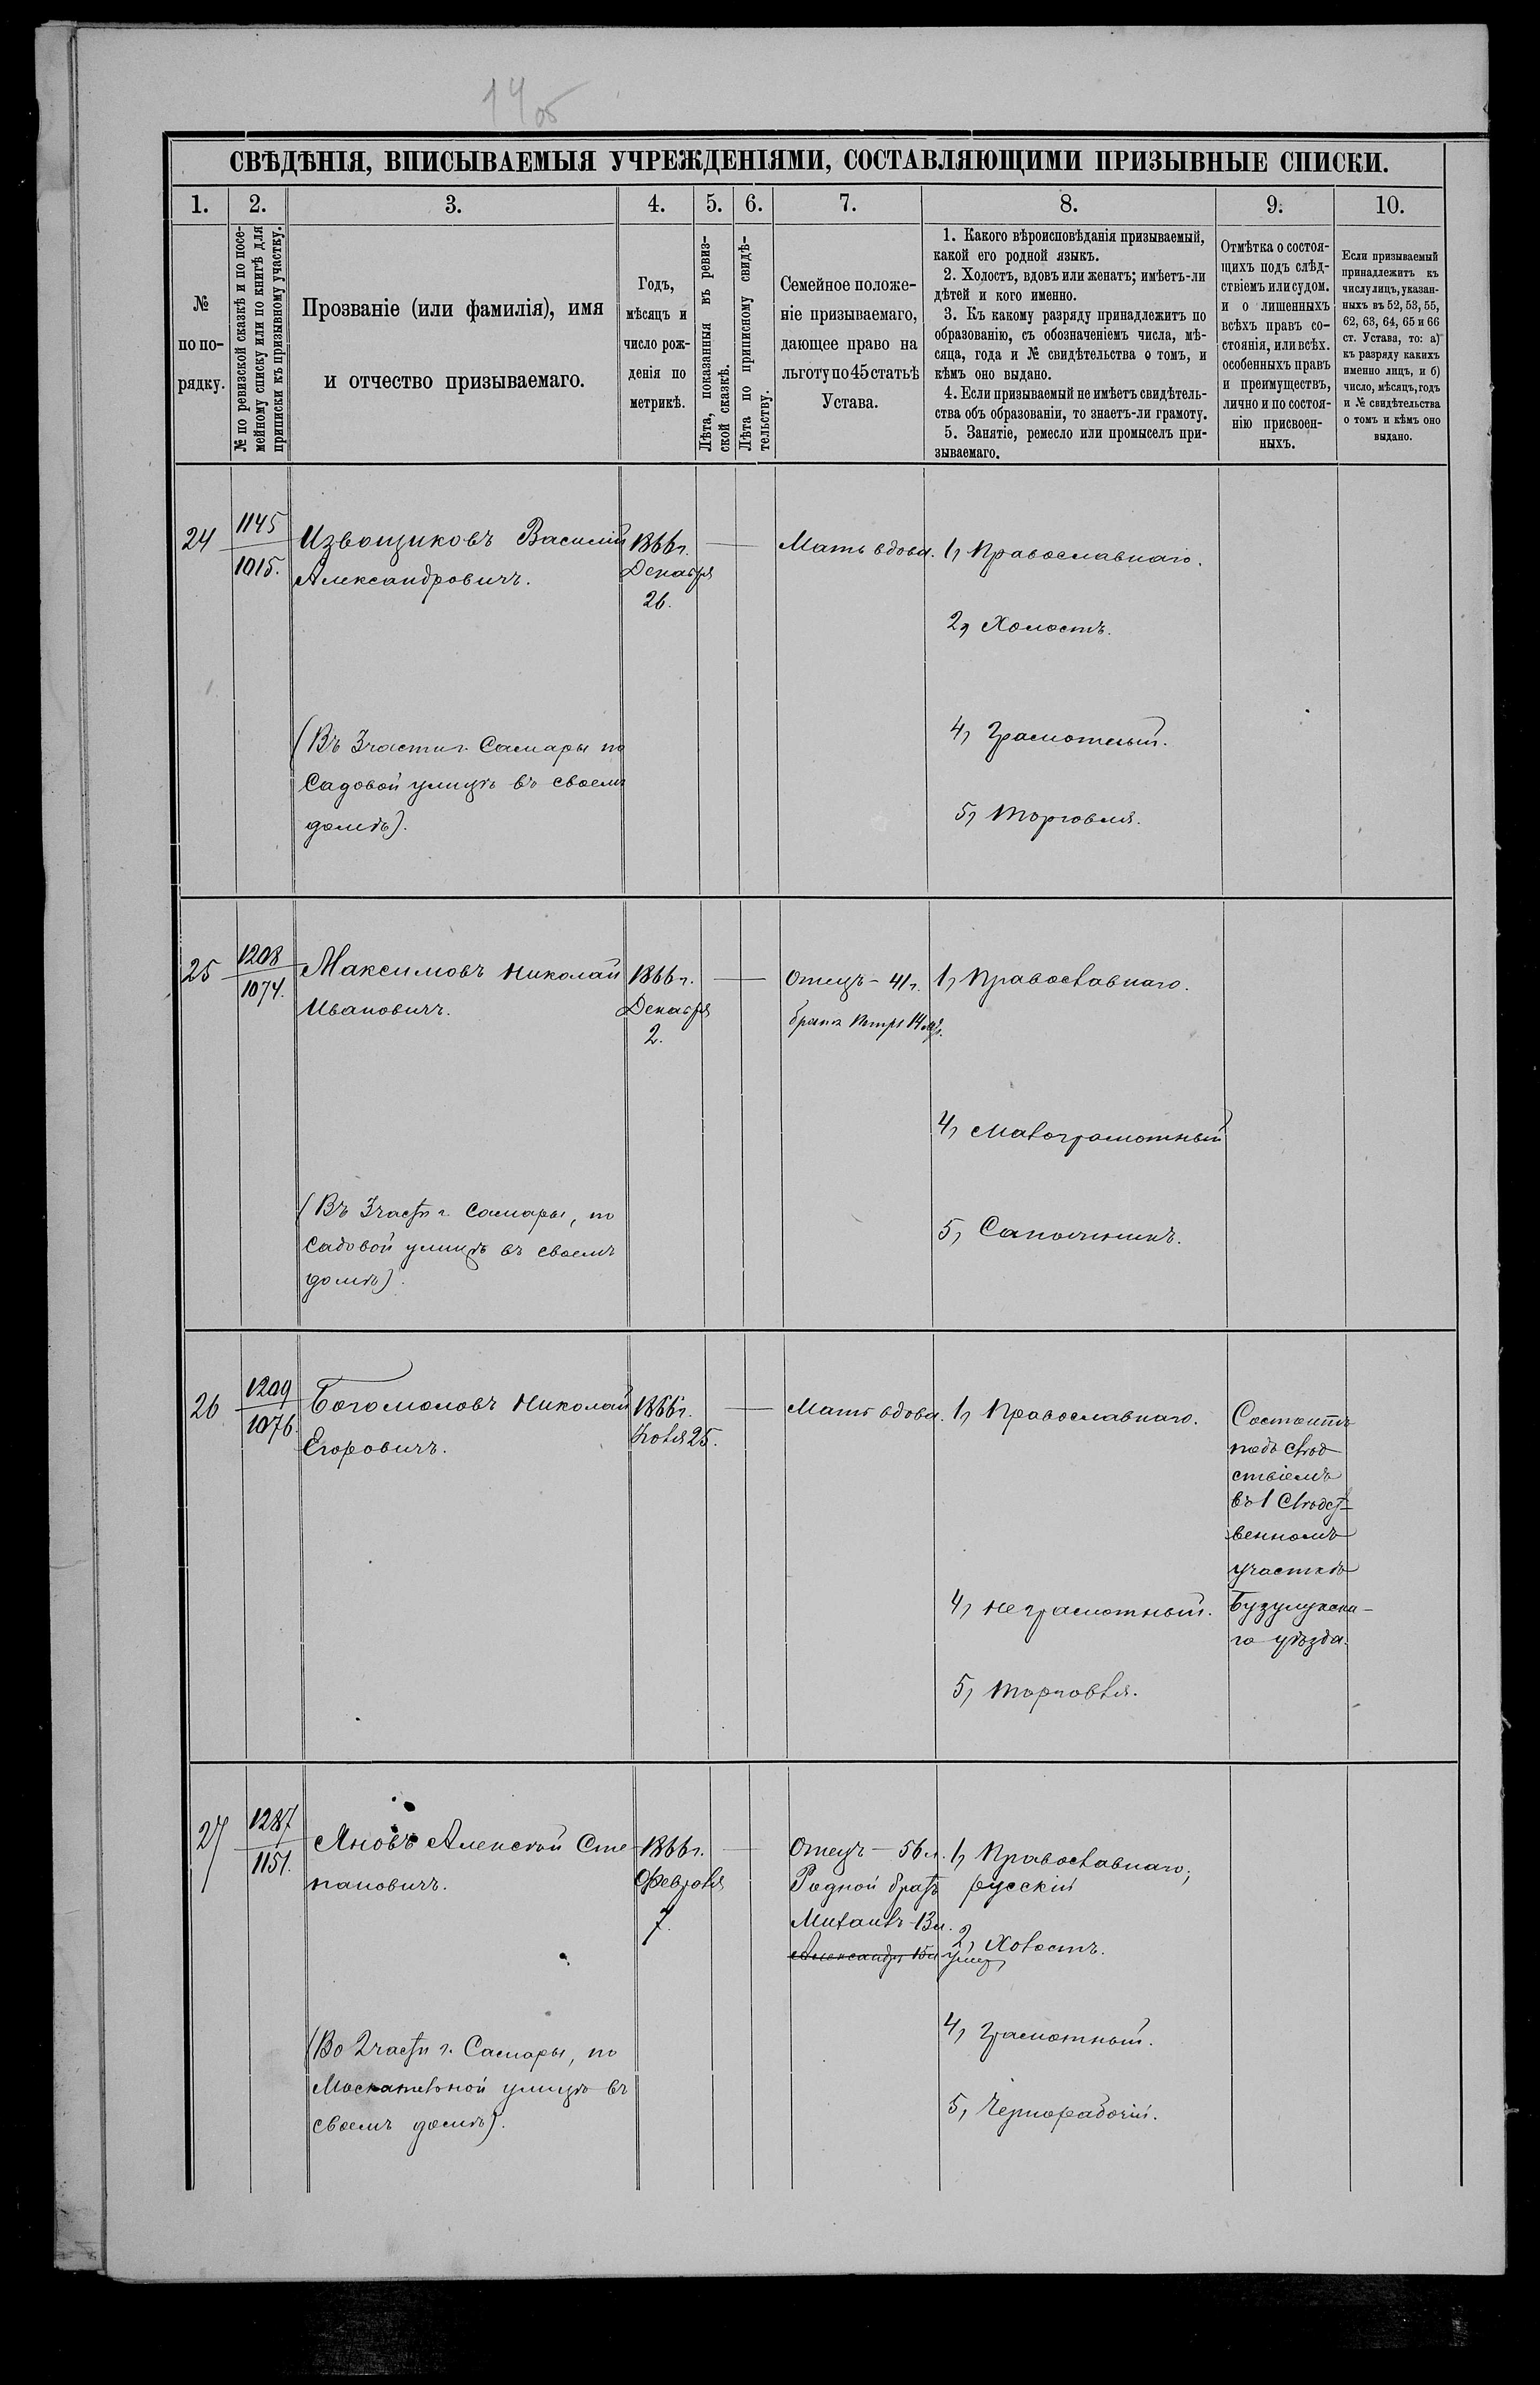 14 об
СВѢДѢНІЯ, ВПИСЫВАЕМЫЯ УЧРЕЖДЕНІЯМИ, СОСТАВЛЯЮЩИМИ ПРИЗЫВНЫЕ СПИСКИ.
1.
2.
3.
4.
5.
6.
7.
8.
9.
10.
№
по по-
рядку.
№ по ревизской сказкѣ и по посе-
мейному списку или по книгѣ для
приписки къ призывному участку.
Прозваніе (или фамилія), имя
и отчество призываемаго.
Годъ,
мѣсяцъ и
число рож-
денія по
метрикѣ.
Лѣта, показанныя въ ревиз-
ской сказкѣ.
Лѣта по приписному свидѣ-
тельству.
Семейное положе-
ніе призываемаго,
дающее право на
льготу по 45 статьѣ
Устава.
1. Какого вѣроисповѣданія призываемый,
какой его родной языкъ.
2. Холостъ, вдовъ или женатъ; имѣетъ-ли
дѣтей и кого именно.
3. Къ какому разряду принадлежитъ по
образованію, съ обозначеніемъ числа, мѣ-
сяца, года и № свидѣтельства о томъ, и
кѣмъ оно выдано.
4. Если призываемый не имѣетъ свидѣтель-
ства объ образованіи, то знаетъ-ли грамоту.
5. Занятіе, ремесло или промыселъ при-
зываемаго.
Отмѣтка о состоя-
щихъ подъ слѣд-
ствіемъ или судом.
и о лишенныхъ
всѣхъ правъ со-
стоянія, или всѣх.
особенныхъ правъ
и преимуществъ,
лично и по состоя-
нію присвоен-
ныхъ.
Если призываемый
принадлежитъ къ
числу лицъ, указан-
ныхъ въ 52, 53, 55,
62, 63, 64, 65 и 66
ст. Устава, то: а)
къ разряду какихъ
именно лицъ, и б)
число, мѣсяцъ, годъ
и № свидѣтельства
о томъ и кѣмъ оно
выдано.
24
1145
1015.
Извощиковъ Василій
Александровичъ.
(Въ 3 части г. Самары по
Садовой улицѣ въ своемъ
домѣ).
1866 г.
Декабря
26.
Мать вдова.
1, Православнаго.
2, Холостъ.
4, Грамотный.
5, Торговля.
25
1208
1074.
Максимовъ Николай
Ивановичъ.
(Въ 3 части г. Самары, по
Садовой улицѣ въ своемъ
домѣ).
1866 г.
Декабря
2.
Отецъ – 41 г.
братъ Петръ 14
1, Православнаго.
4, Малограмотный
5, Сапожникъ.
26
1209
1076.
Богомоловъ Николай
Егоровичъ.
1866 г.
25.
Мать вдова.
1, Православнаго.
4, Неграмотный.
5, Торговля.
Состоитъ
подъ слѣд
ствіемъ
въ 1 Слѣдст-
венномъ
участкѣ
Бузулукска-
го уѣзда.
27
1287
1151.
Яновъ Алексѣй Сте
пановичъ.
(Во 2 части г. Самары, по
Москательной улицѣ въ
своемъ домѣ).
1866 г.
Февраля
7.
Отецъ – 56 л.
Родной братъ
Михаилъ – 13 л.
Александръ 15 л умеръ
1, Православнаго;
русскій
2, Холостъ.
4, Грамотный.
5, Чернорабочій.